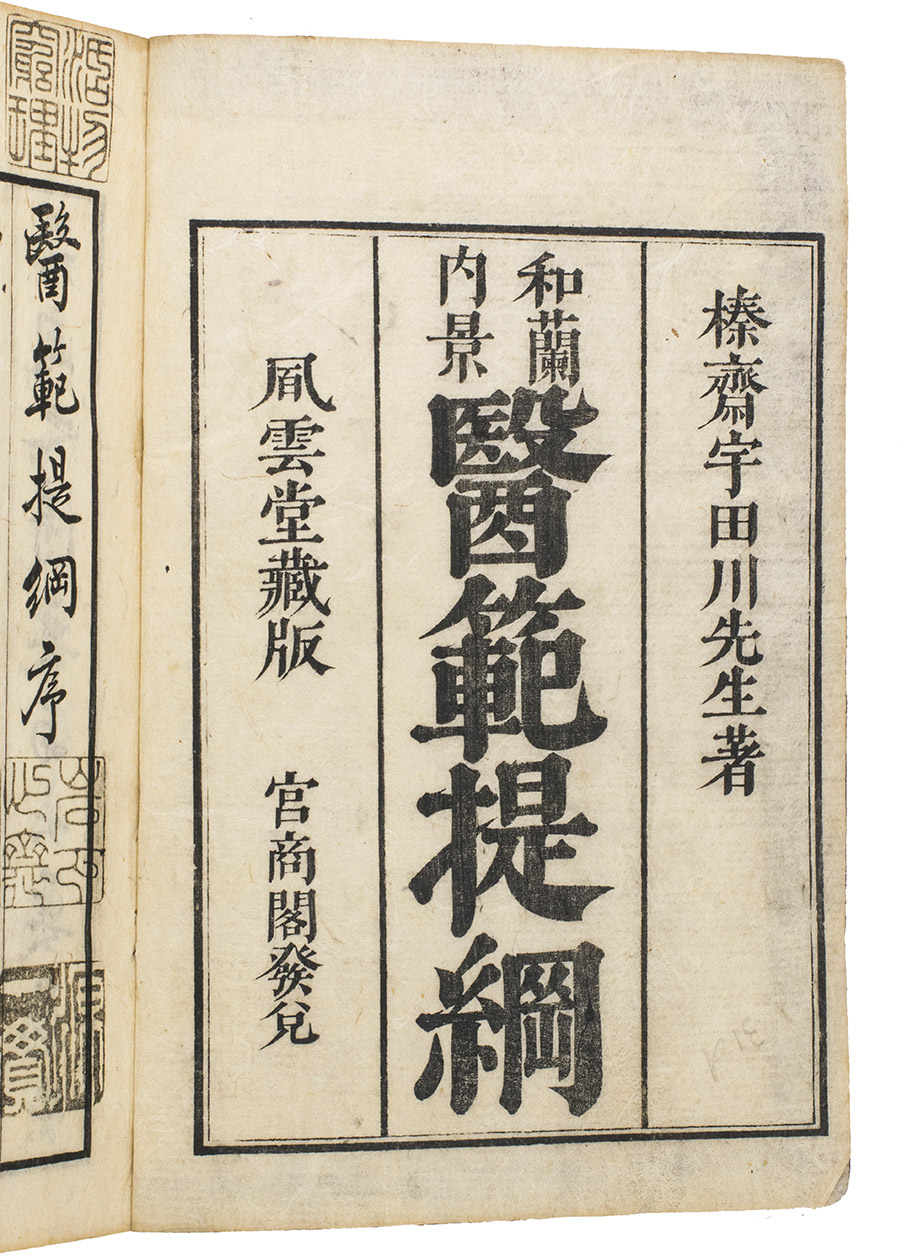 榛齋宇田川先生著
和蘭
内景
醫範提綱
風雲堂藏版 官商閣發兌
活物
窮理
醫範提綱序